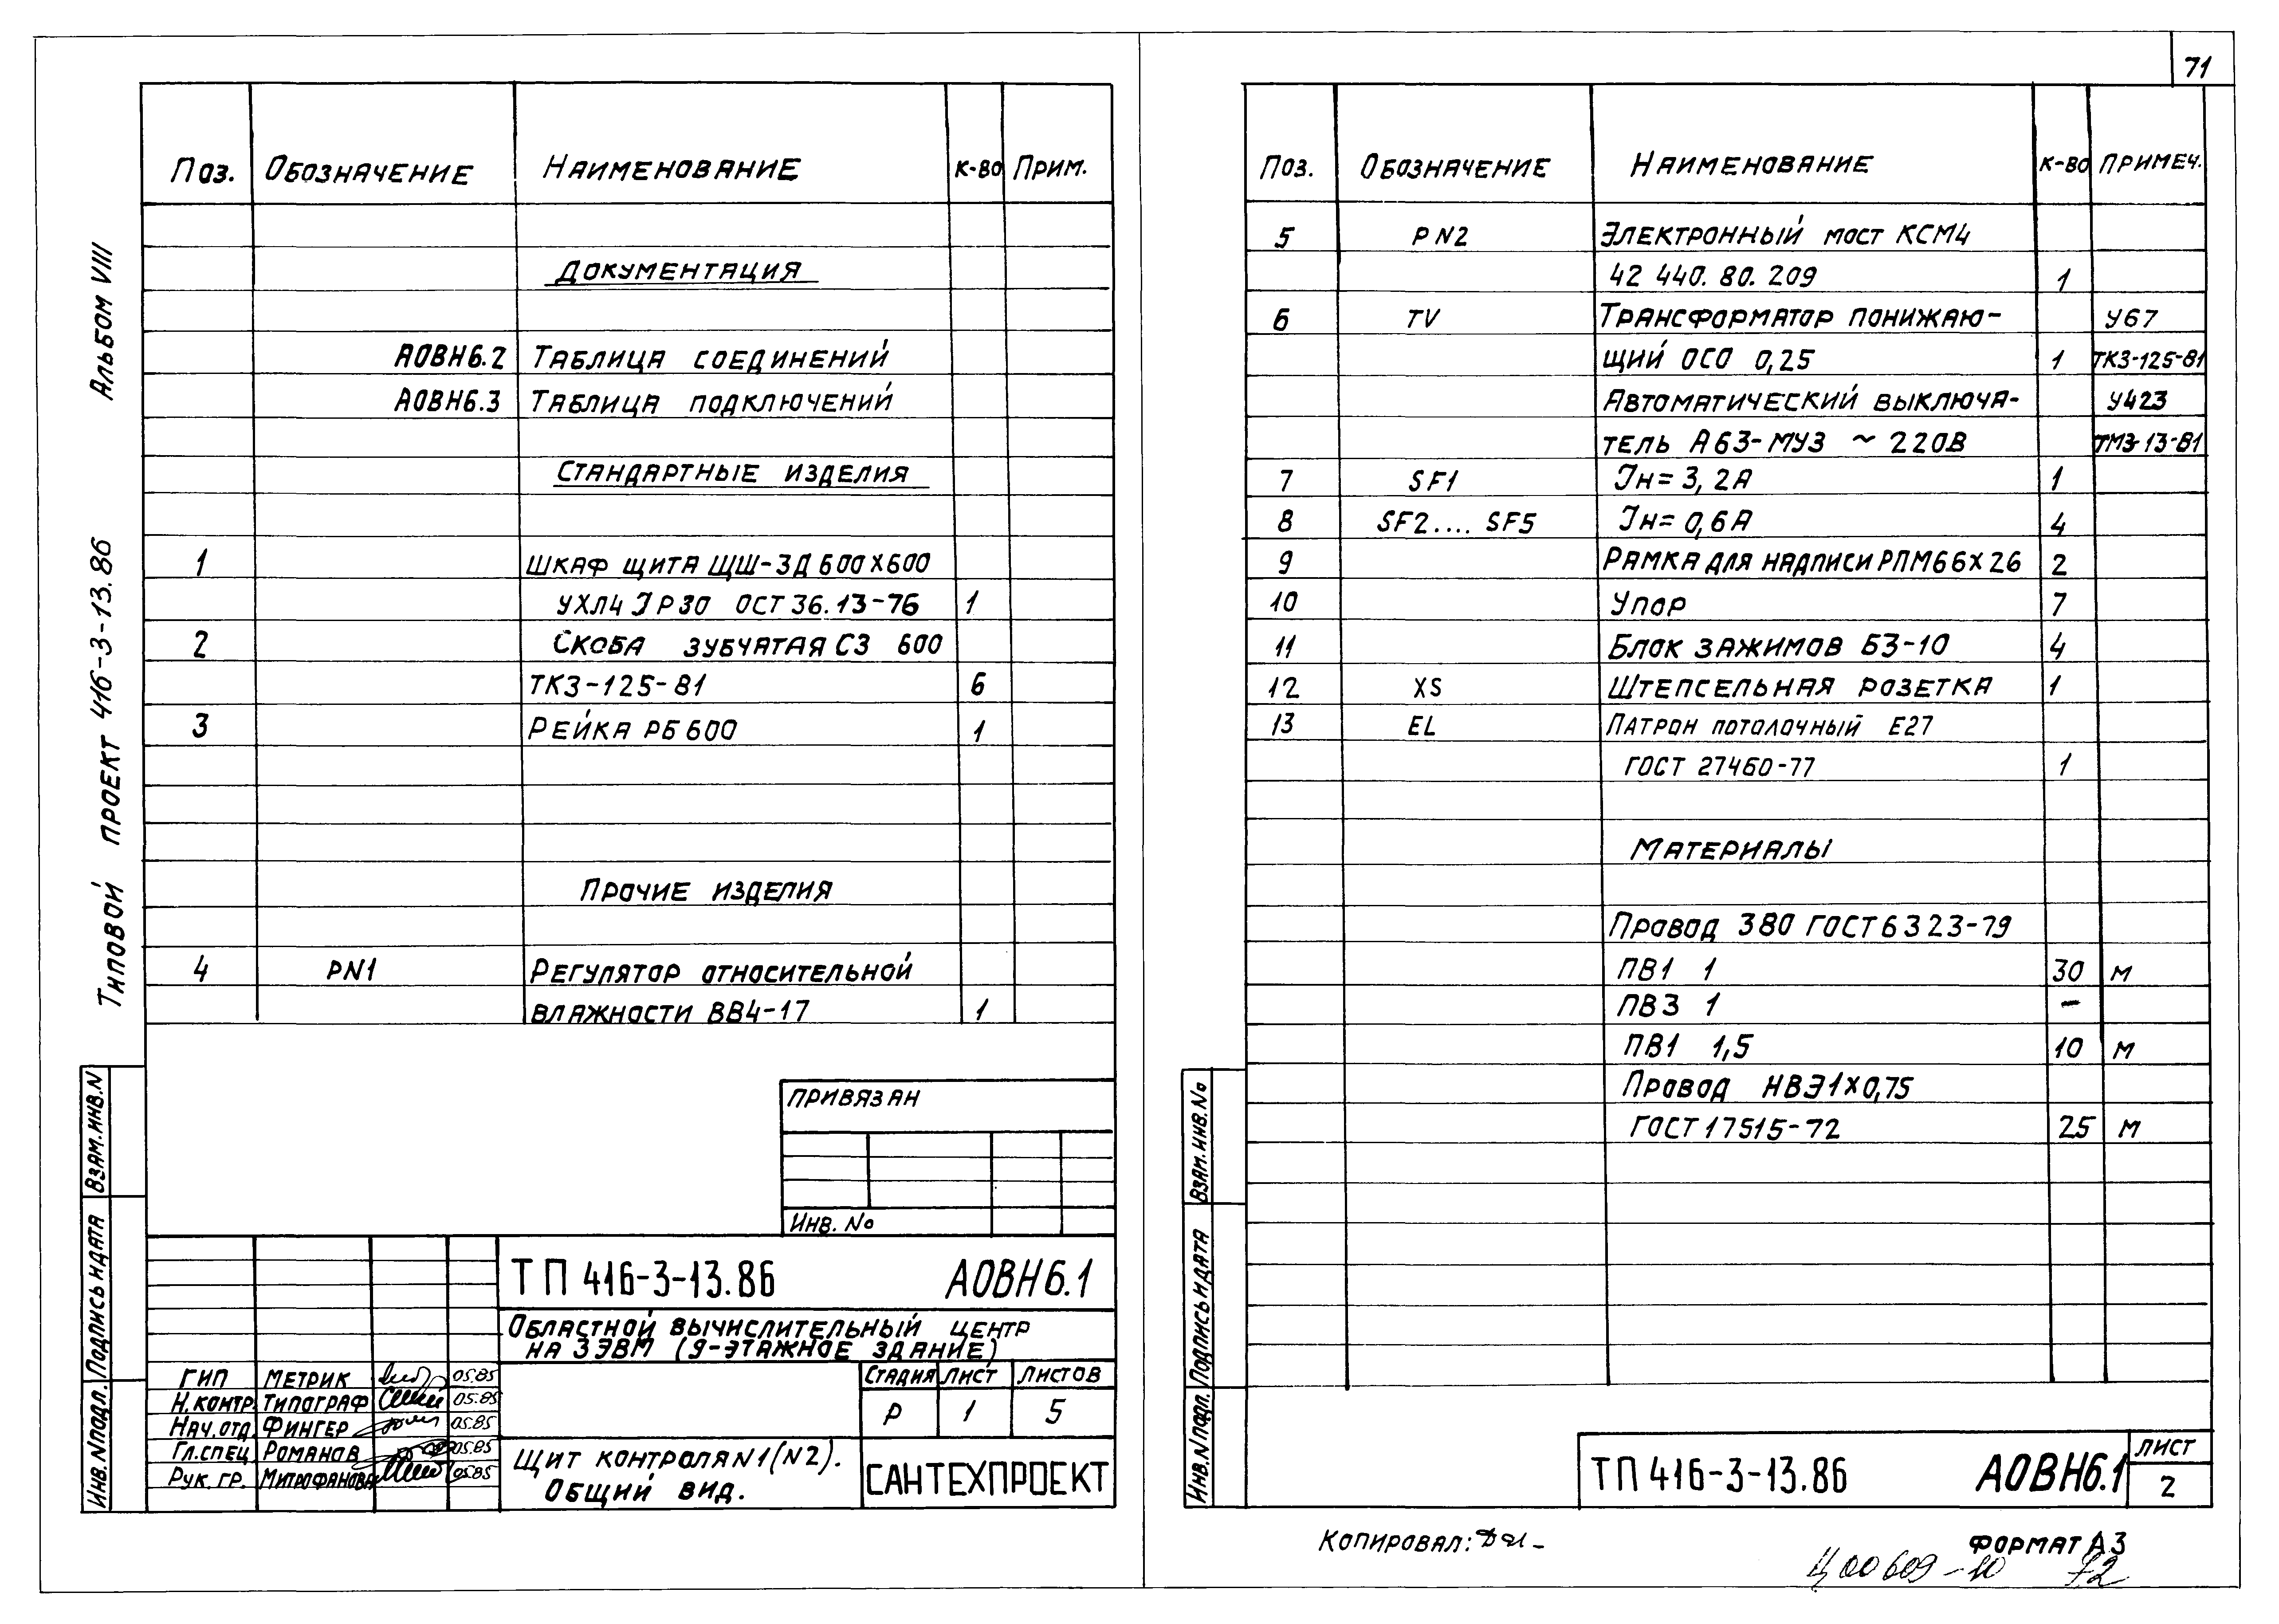 71
Альбом VIII
Типовой проект 416-3-13.86
Поз. Обозначение Наименование К-во Прим.
Документация
АОВН6.2 Таблица соединений
АОВН6.3 Таблица подключений
Стандартные изделия
1 Шкаф щита ЩШ-ЗД 600х600
УХЛ4 IP30 ОСТ 36.13-76 1
2 Скоба зубчатая СЗ 600
ТКЗ-125-81 6
3 Рейка РБ 600 1
Прочие изделия
4 PN1 Регулятор относительной
влажности ВВ4-17 1
Привязан
Инв. №
Взам. инв. N
Подпись и дата
Инв. N подл.
ТП 416-3-13.86 АОВН6.1
Областной вычислительный центр
на 3 ЭВМ (9-этажное здание)
ГИП Метрик 05.85
Н. контр. Типограф 05.85
Нач. отд. Фингер 05.85
Гл. спец. Романов 05.85
Рук. гр. Митрофанова 05.85
Стадия Лист Листов
Р 1 5
Щит контроля N1 (N2).
Общий вид.
САНТЕХПРОЕКТ
Поз. Обозначение Наименование К-во Примеч.
5 PN2 Электронный мост КСМ4
42 440. 80. 209 1
6 TV Трансформатор понижаю- У67
щий ОСО 0,25 1 ТКЗ-125-81
Автоматический выключа- У423
тель А63-МУ3 ~ 220В ТМЗ-13-81
7 SF1 Iн = 3,2А 1
8 SF2.... SF5 Iн = 0,6А 4
9 Рамка для надписи РПМ 66х26 2
10 Упор 7
11 Блок зажимов БЗ-10 4
12 XS Штепсельная розетка 1
13 EL Патрон потолочный Е27
ГОСТ 27460-77 1
Материалы
Провод 380 ГОСТ 6323-79
ПВ1 1 30 м
ПВ3 1 —
ПВ1 1,5 10 м
Провод НВЭ 1х0,75
ГОСТ 17515-72 25 м
Взам. инв. №
Подпись и дата
Инв. N подл.
ТП 416-3-13.86 АОВН6.1 Лист
2
Копировал:
Формат А3
Ц00609-10 72